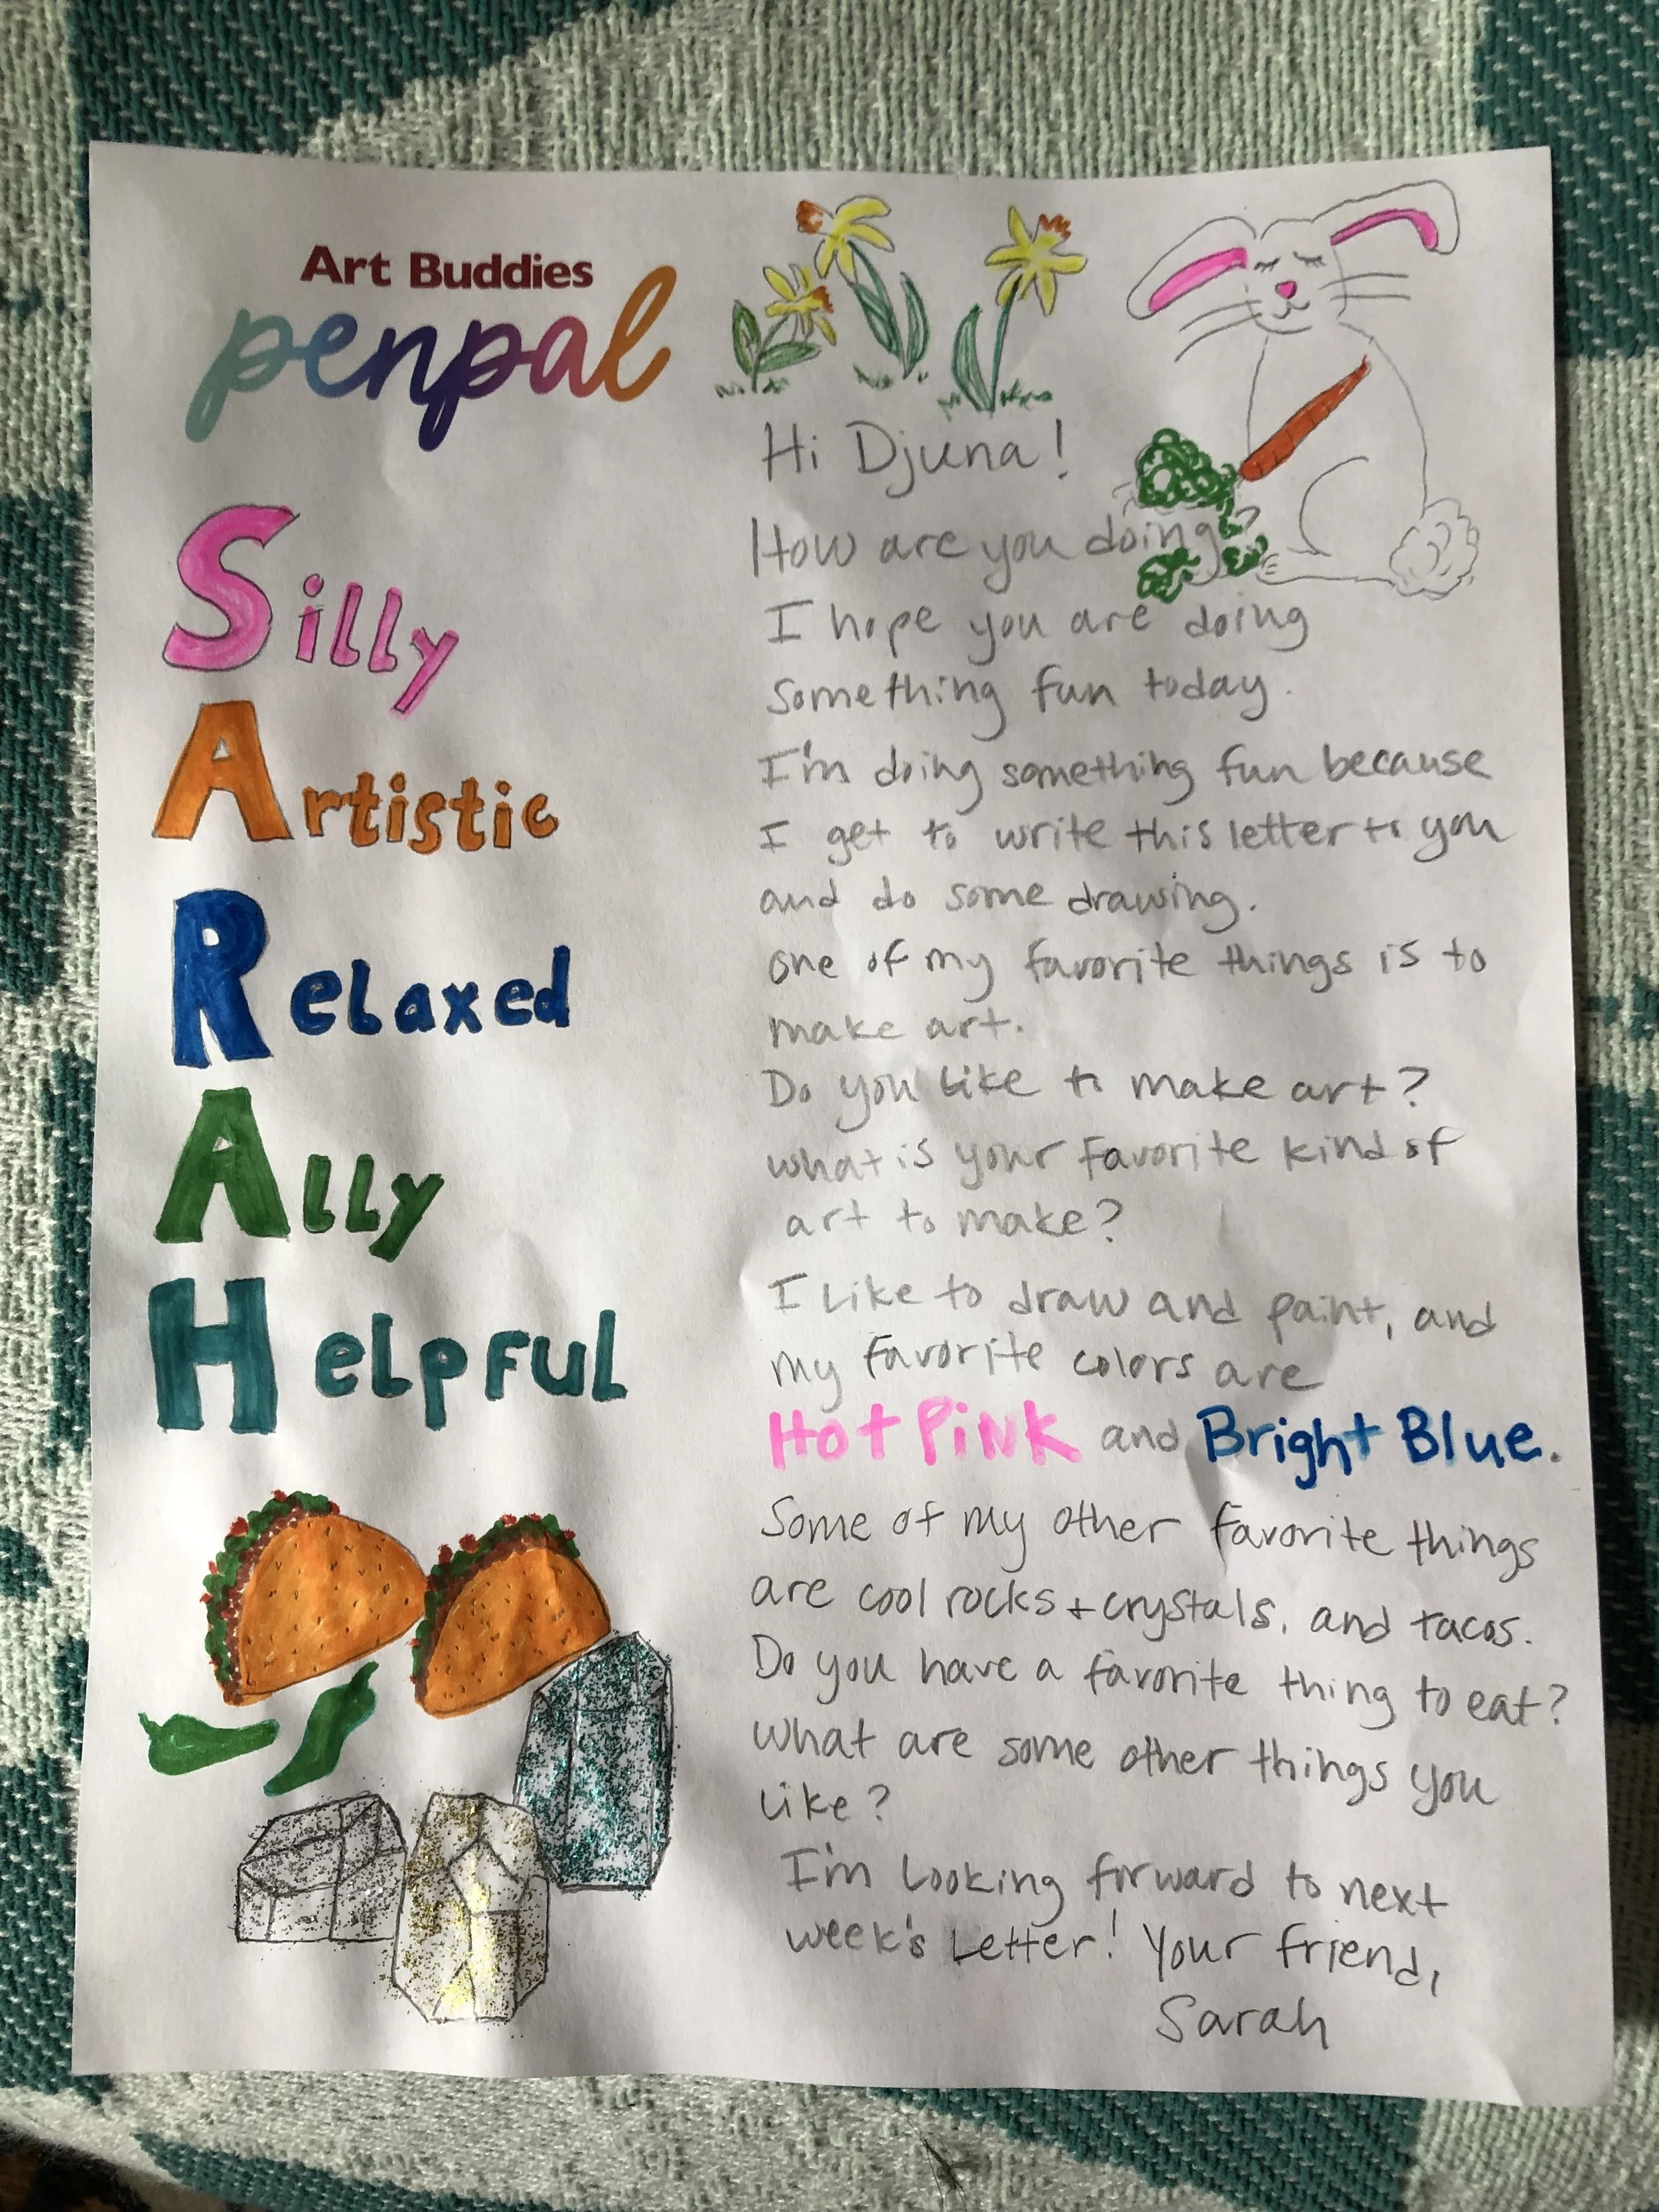 Art Buddies
penpal
Silly
Artistic
Relaxed
Ally
Helpful
Hi Djuna!
How are you doing?
I hope you are doing
something fun today.
I'm doing something fun because
I get to write this letter to you
and do some drawing.
one of my favorite things is to
make art.
Do you like to make art?
what is your favorite kind of
art to make?
I Like to draw and paint, and
my favorite colors are
Hot Pink and Bright Blue.
Some of my other favorite things
are cool rocks + crystals, and tacos.
Do you have a favorite thing to eat?
What are some other things you
like?
I'm Looking forward to next
week's Letter! Your friend,
Sarah